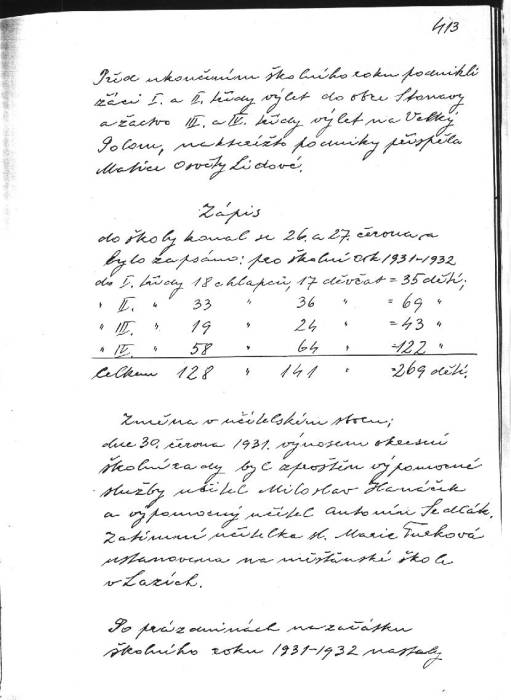 413
Před ukončením školního roku podnikli
žáci I. a II. třídy výlet do obce Stonavy
a žactvo III. a IV. třídy výlet na Velký
Polom, na kteréžto podniky přispěla
Matice Osvěty Lidové.
Zápis
do školy konal se 26. a 27. června, a
bylo zapsáno: pro školní rok 1931-1932
do I. třídy 18 chlapců, 17 děvčat = 35 dětí;
" II. " 33 " 36 " = 69 "
" III. " 19 " 24 " = 43 "
" IV. " 58 " 64 " = 122 "
Celkem 128 " 141 " = 269 dětí.
Změna v učitelském sboru;
dne 30. června 1931. výnosem okresní
školní rady byl zproštěn výpomocné
služby učitel Miloslav Hanáček
a výpomocný učitel Antonín Sedlák.
Zatímní učitelka sl. Marie Turková
ustanovena na měšťanské škole
v Lazích.
Po prázdninách na začátku
školního roku 1931-1932 nastaly